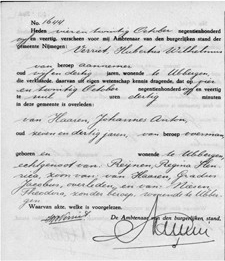 No. 1644
Heden vier en twintig October negentienhonderd
vijf en veertig, verscheen voor mij Ambtenaar van den burgerlijken stand der
gemeente Nijmegen: Verriet, Hubertus Wilhelmus
van beroep aannemer
oud vijf en dertig jaren, wonende te Ubbergen,
die verklaarde, daarvan uit eigen wetenschap kennis dragende, dat op vier
en twintig October negentienhonderd vijf en veertig
te uur dertig minuten
in deze gemeente is overleden:
van Haaren, Johannes Anton
oud zeven en dertig jaren van beroep voerman
geboren en wonende te Ubbergen
echtgenoot van Reijnen, Regina
zoon van van Haaren, Gradus
Jacobus, overleden, en van
Theodora, zonder beroep, wonende te Ubbergen
Waarvan akte, welke is voorgelezen.
De Ambtenaar van den burgerlijken stand,